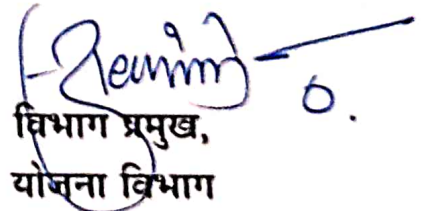 विभाग प्रमुख,
योजना विभाग